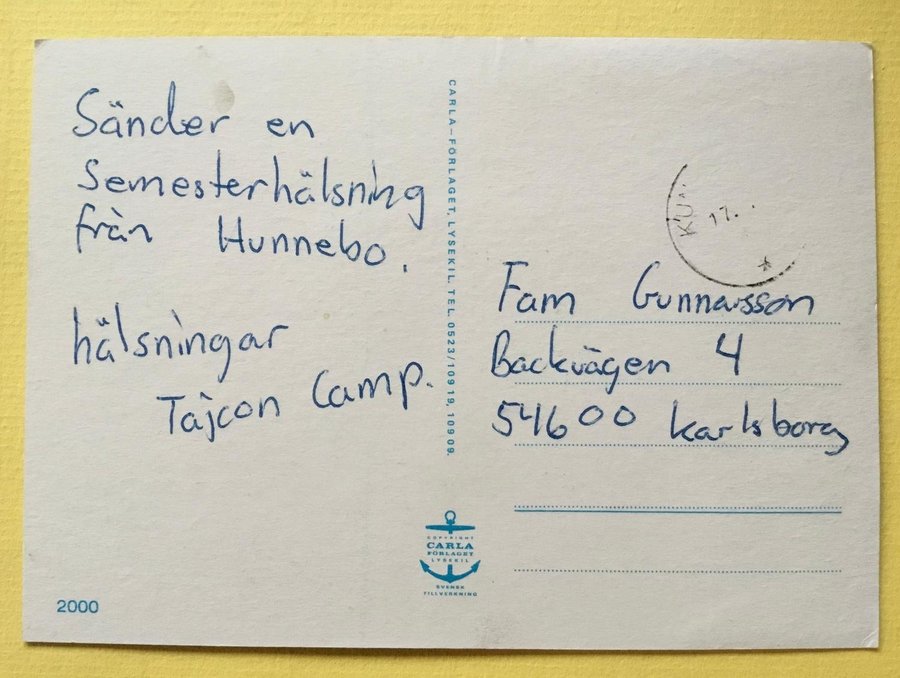 Sänder en
Semesterhälsning
från Hunnebo.
hälsningar
Tajcon Camp.
2000
CARLA-FÖRLAGET, LYSEKIL. TEL. 0523/109 19, 109 09.
COPYRIGHT
CARLA
FÖRLAGET
LYSEKIL
SVENSK
TILLVERKNING
17.
Fam Gunnarsson
Backvägen 4
54600 Karlsborg